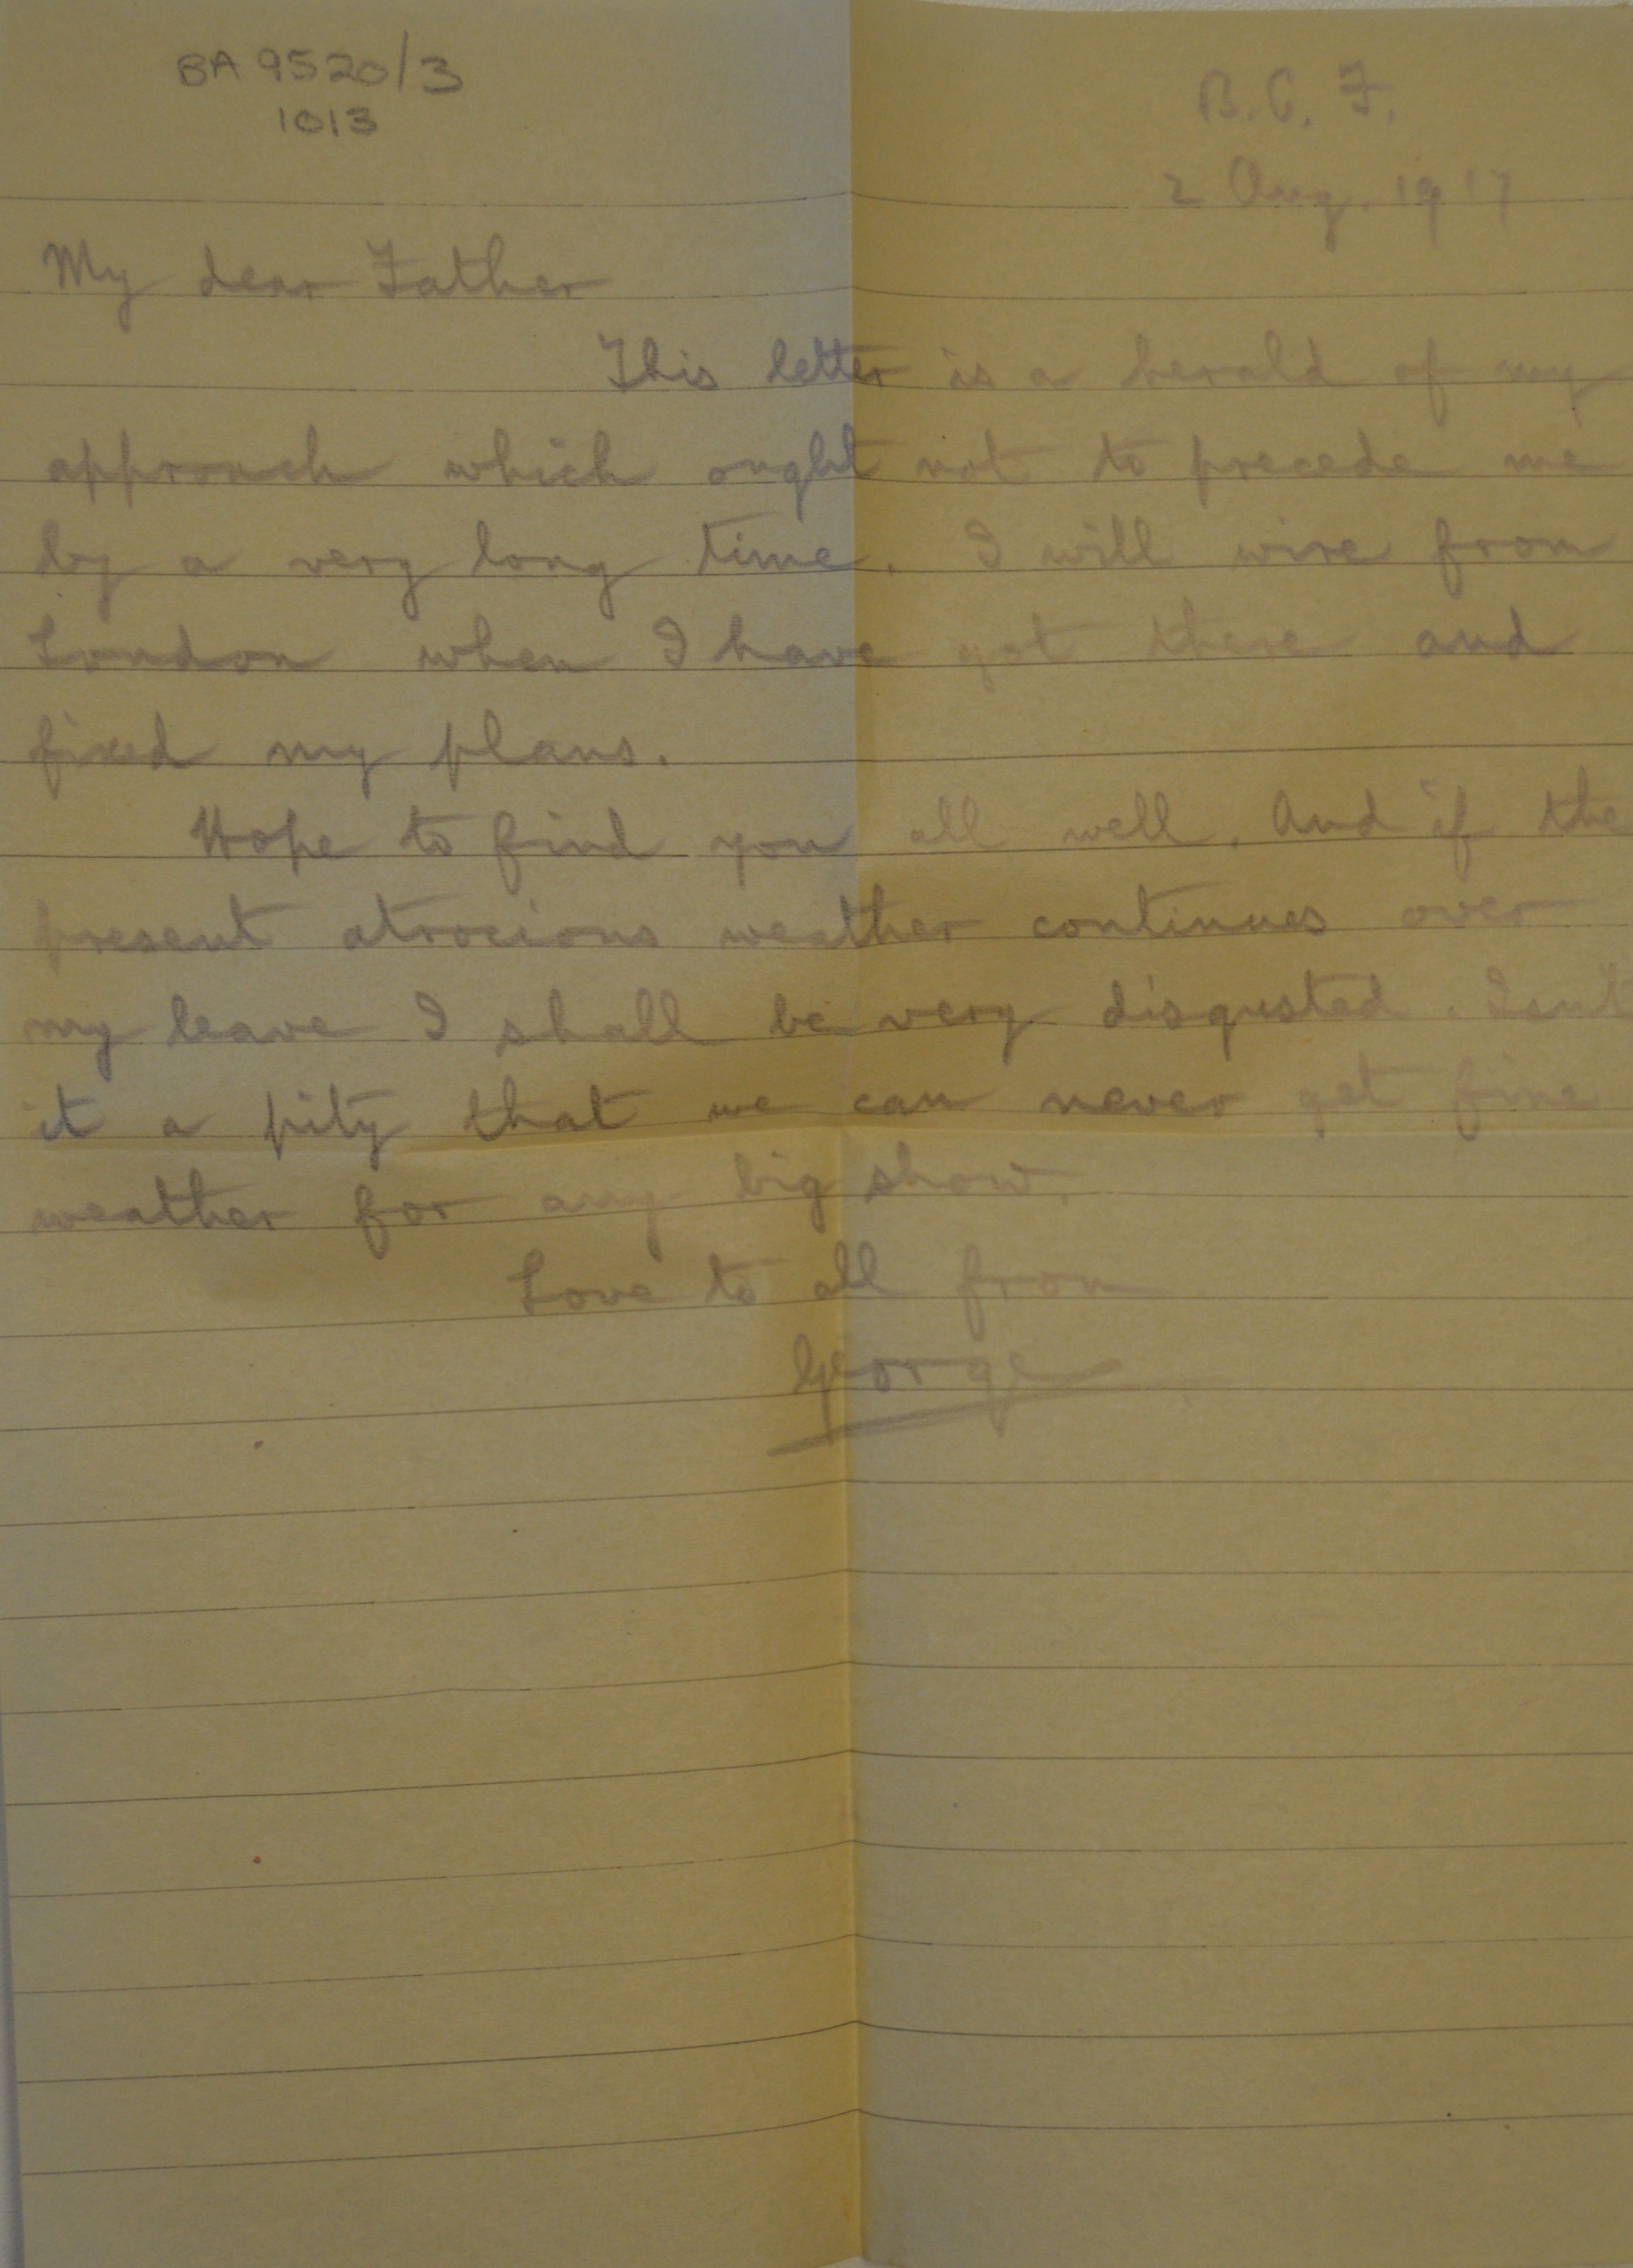 BA 9520/3
1013
B.E.F.
2 Aug. 1917
My dear Father
This letter is a herald of my
approach which ought not to precede me
by a very long time. I will wire from
London when I have got there and
fixed my plans.
Hope to find you all well. And if the
present atrocious weather continues over
my leave I shall be very disgusted. Isn't
it a pity that we can never get fine
weather for any big show.
Love to all from
George